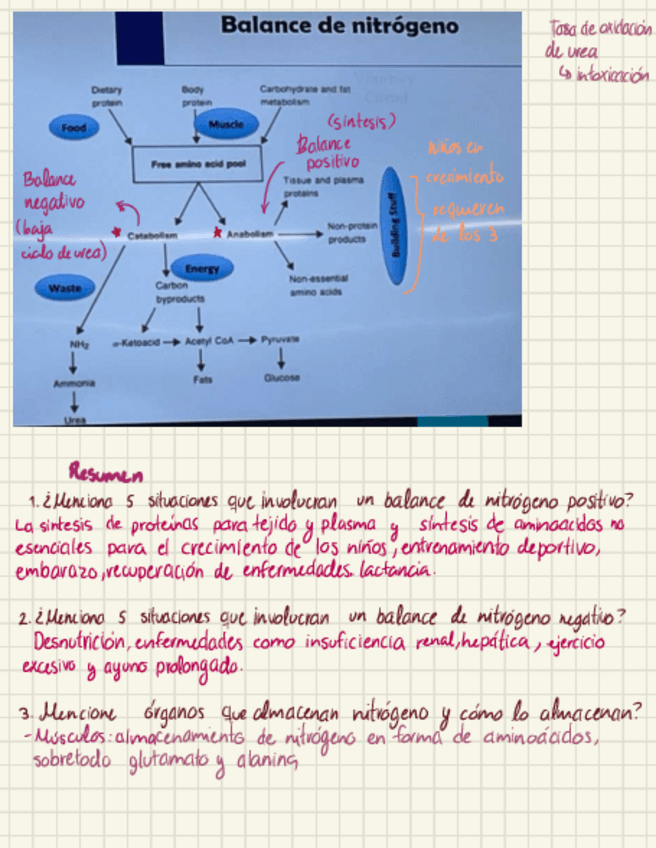 Balance de nitrógeno
Tasa de oxidación
de urea
↳ intoxicación
Dietary
protein
Body
protein
Carbohydrate and fat
metabolism
Food
Muscle
(síntesis)
Balance
positivo
Free amino acid pool
niños en
crecimiento
requieren
de los 3
Balance
negativo
(baja
ciclo de urea)
Tissue and plasma
proteins
* Catabolism
* Anabolism
Non-protein
products
Building Stuff
Energy
Waste
Carbon
byproducts
Non-essential
amino acids
NH₂
α-Ketoacid → Acetyl CoA → Pyruvate
Ammonia
Fats
Glucose
Urea
Resumen
1. ¿Menciona 5 situaciones que involucran un balance de nitrógeno positivo?
La síntesis de proteínas para tejido y plasma y síntesis de aminoacidos no
esenciales para el crecimiento de los niños, entrenamiento deportivo,
embarazo, recuperación de enfermedades. lactancia.
2. ¿Menciona 5 situaciones que involucran un balance de nitrógeno negativo?
Desnutrición, enfermedades como insuficiencia renal, hepática, ejercicio
excesivo y ayuno prolongado.
3. Mencione órganos que almacenan nitrógeno y cómo lo almacenan?
- Músculos: almacenamiento de nitrógeno en forma de aminoácidos,
sobretodo glutamato y alanina